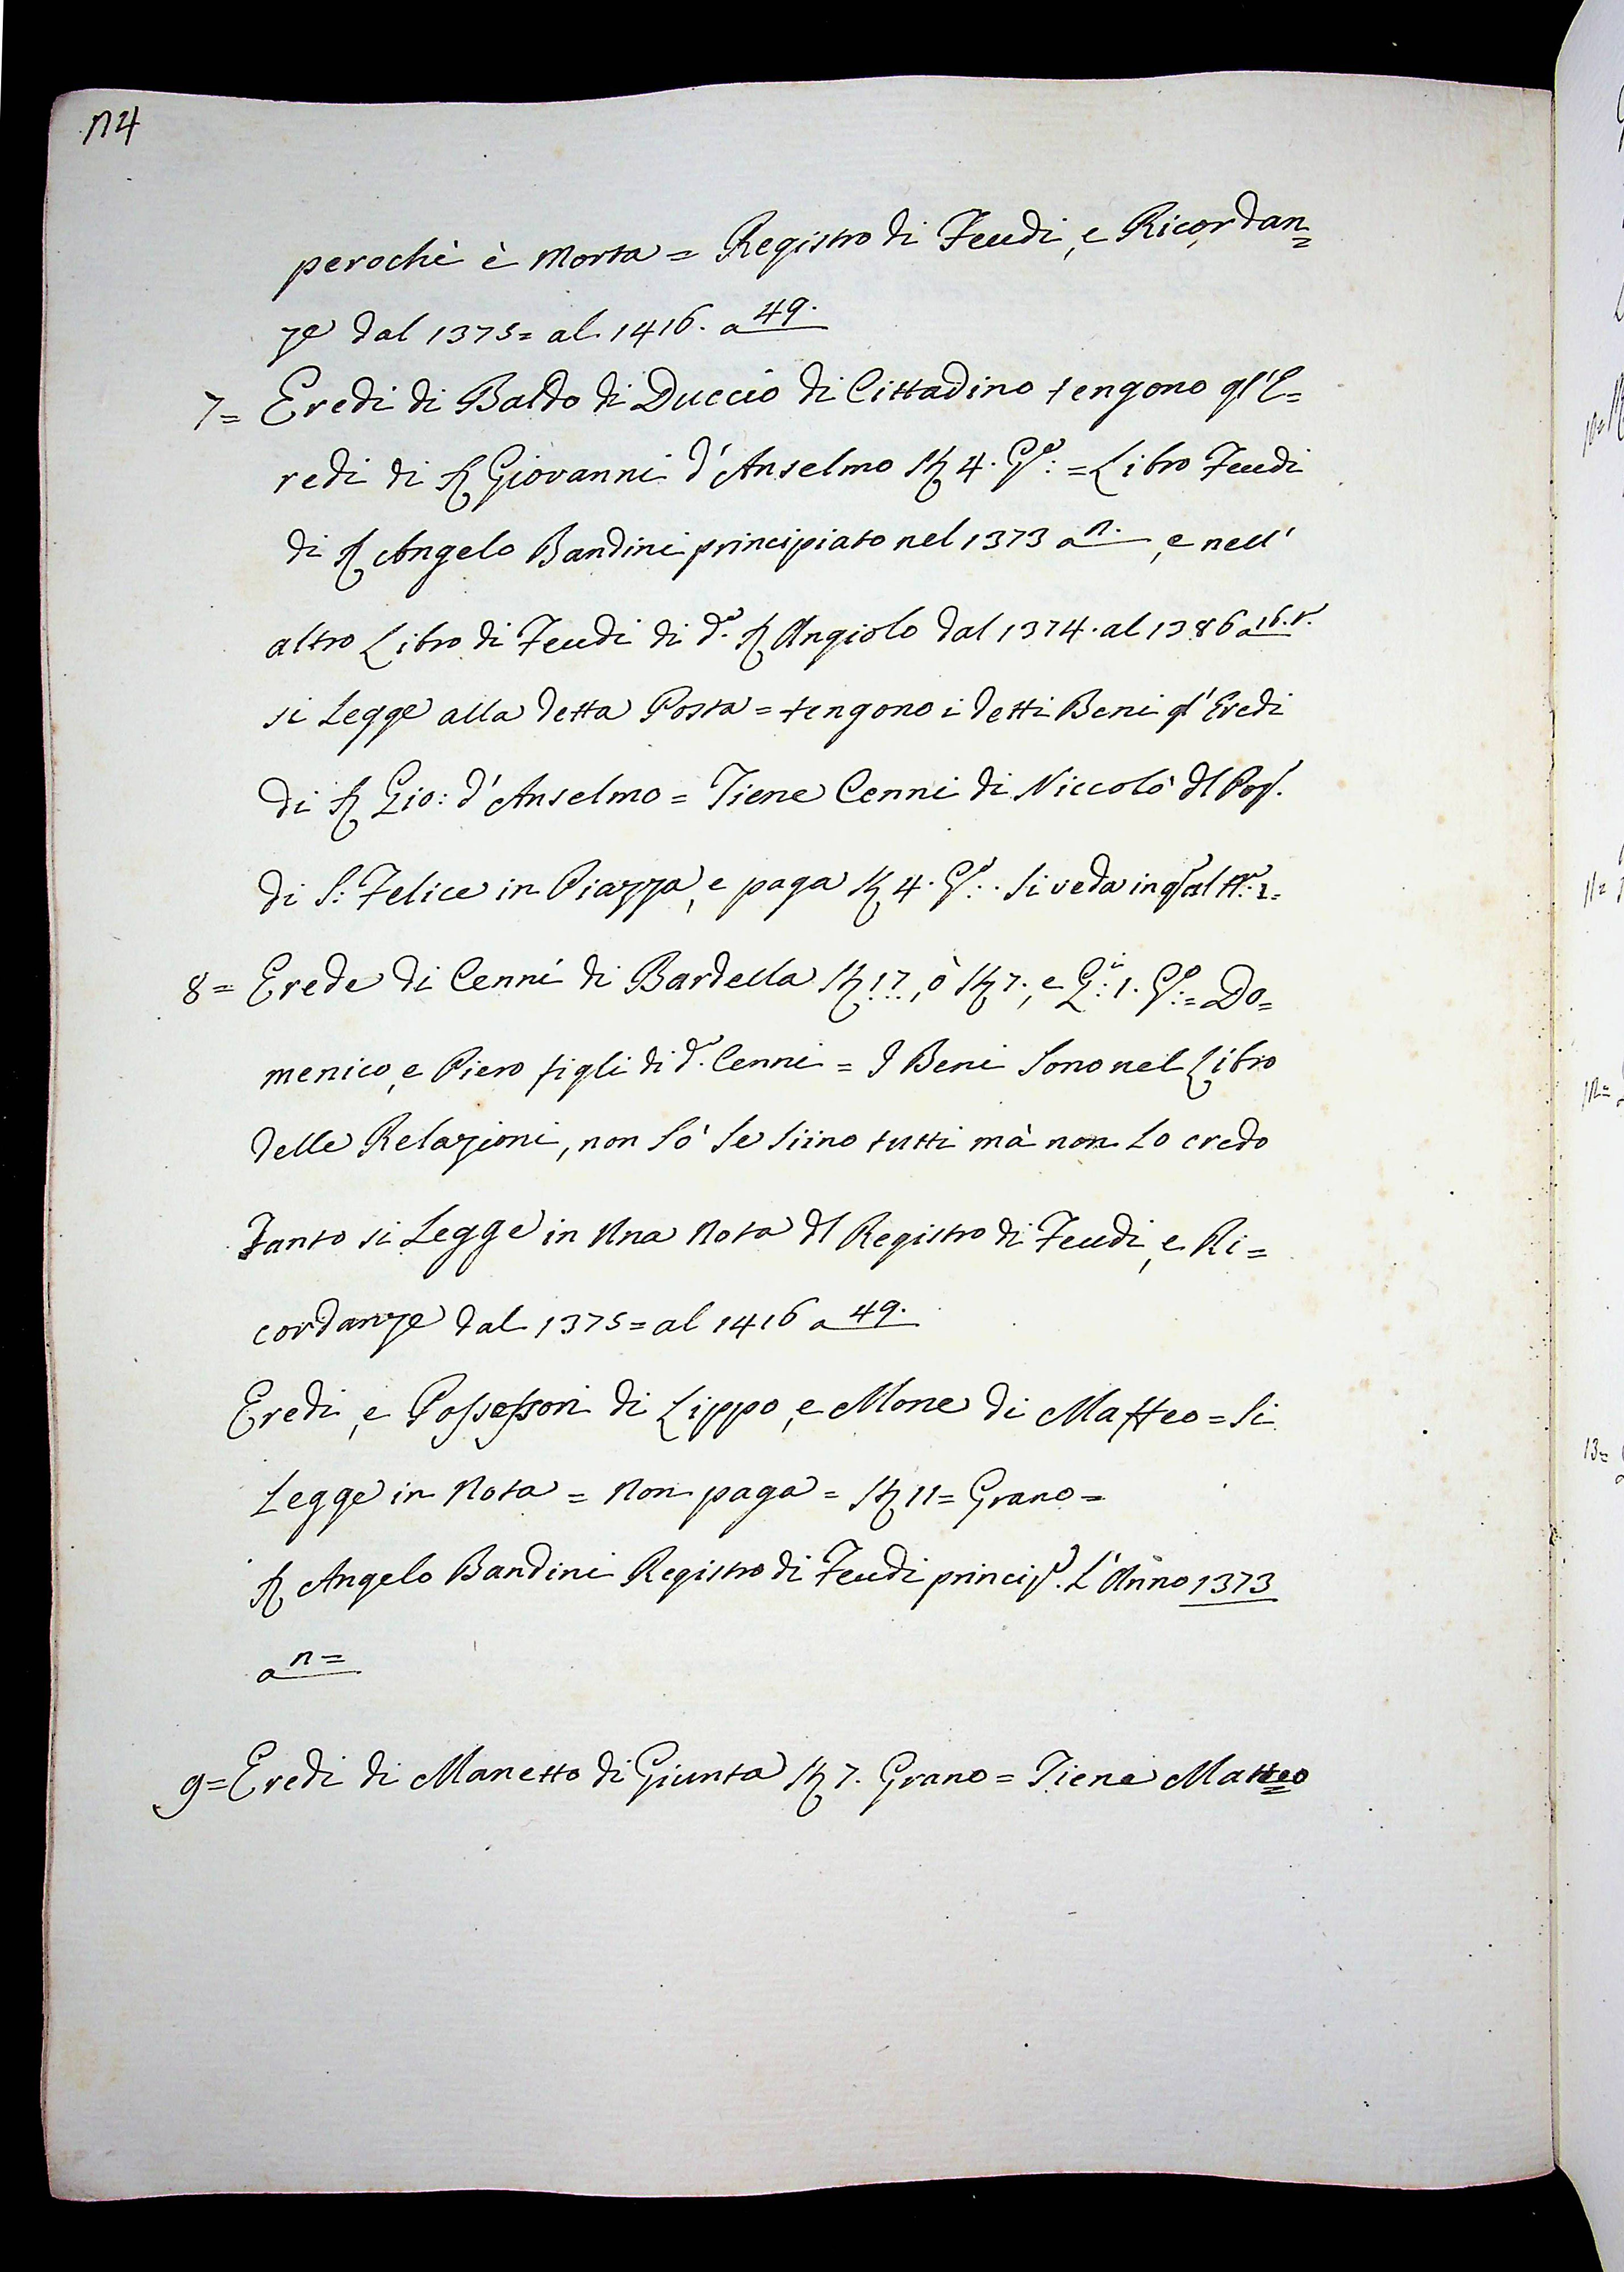 124
perochè è Morta = Registro di Feudi, e Ricordan=
ze dal 1375= al 1416. a 49.
7= Eredi di Baldo di Duccio di Cittadino tengono gl'E=
redi di S. Giovanni d'Anselmo St 4. G.º: = Libro Feudi
di S. Angelo Bandini principiato nel 1373 a 12. , e nell'
altro Libro di Feudi di d.º S. Angiolo dal 1374. al 1386 a 16. t.
si Legge alla detta Posta = tengono i detti Beni gl'Eredi
di S. Gio: d'Anselmo = Tiene Cenni di Niccolò dl Pop.
di S: Felice in Piazza, e paga St 4. G.º: . Si veda in al N.º: 1=
8= Erede di Cenni di Bardella St 17, ò St 7., e Q: 1. G.º: = Do=
menico, e Piero figli di d.º Cenni = I Beni Sono nel Libro
delle Relazioni, non Sò Se Siino tutti mà non Lo credo
Tanto si Legge in Una Nota dl Registro di Feudi, e Ri=
cordanze dal 1375= al 1416 a 49.
Eredi, e Possessori di Lippo, e Mone di Maffeo = Si
Legge in Nota = Non paga = St 11= Grano =
S. Angelo Bandini Registro di Feudi princip.º L'Anno 1373
a 12=
9= Eredi di Manetto di Giunta St 7. Grano = Tiene Matteo
10=
11=
12=
13=